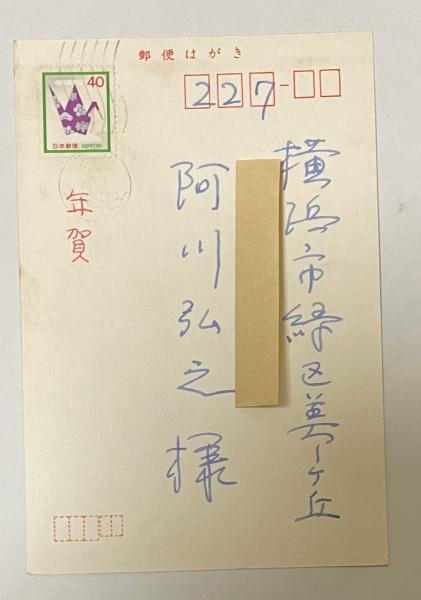 郵便はがき
40
日本郵便 NIPPON
227-
横浜市緑区美しケ丘
阿川弘之様
年賀